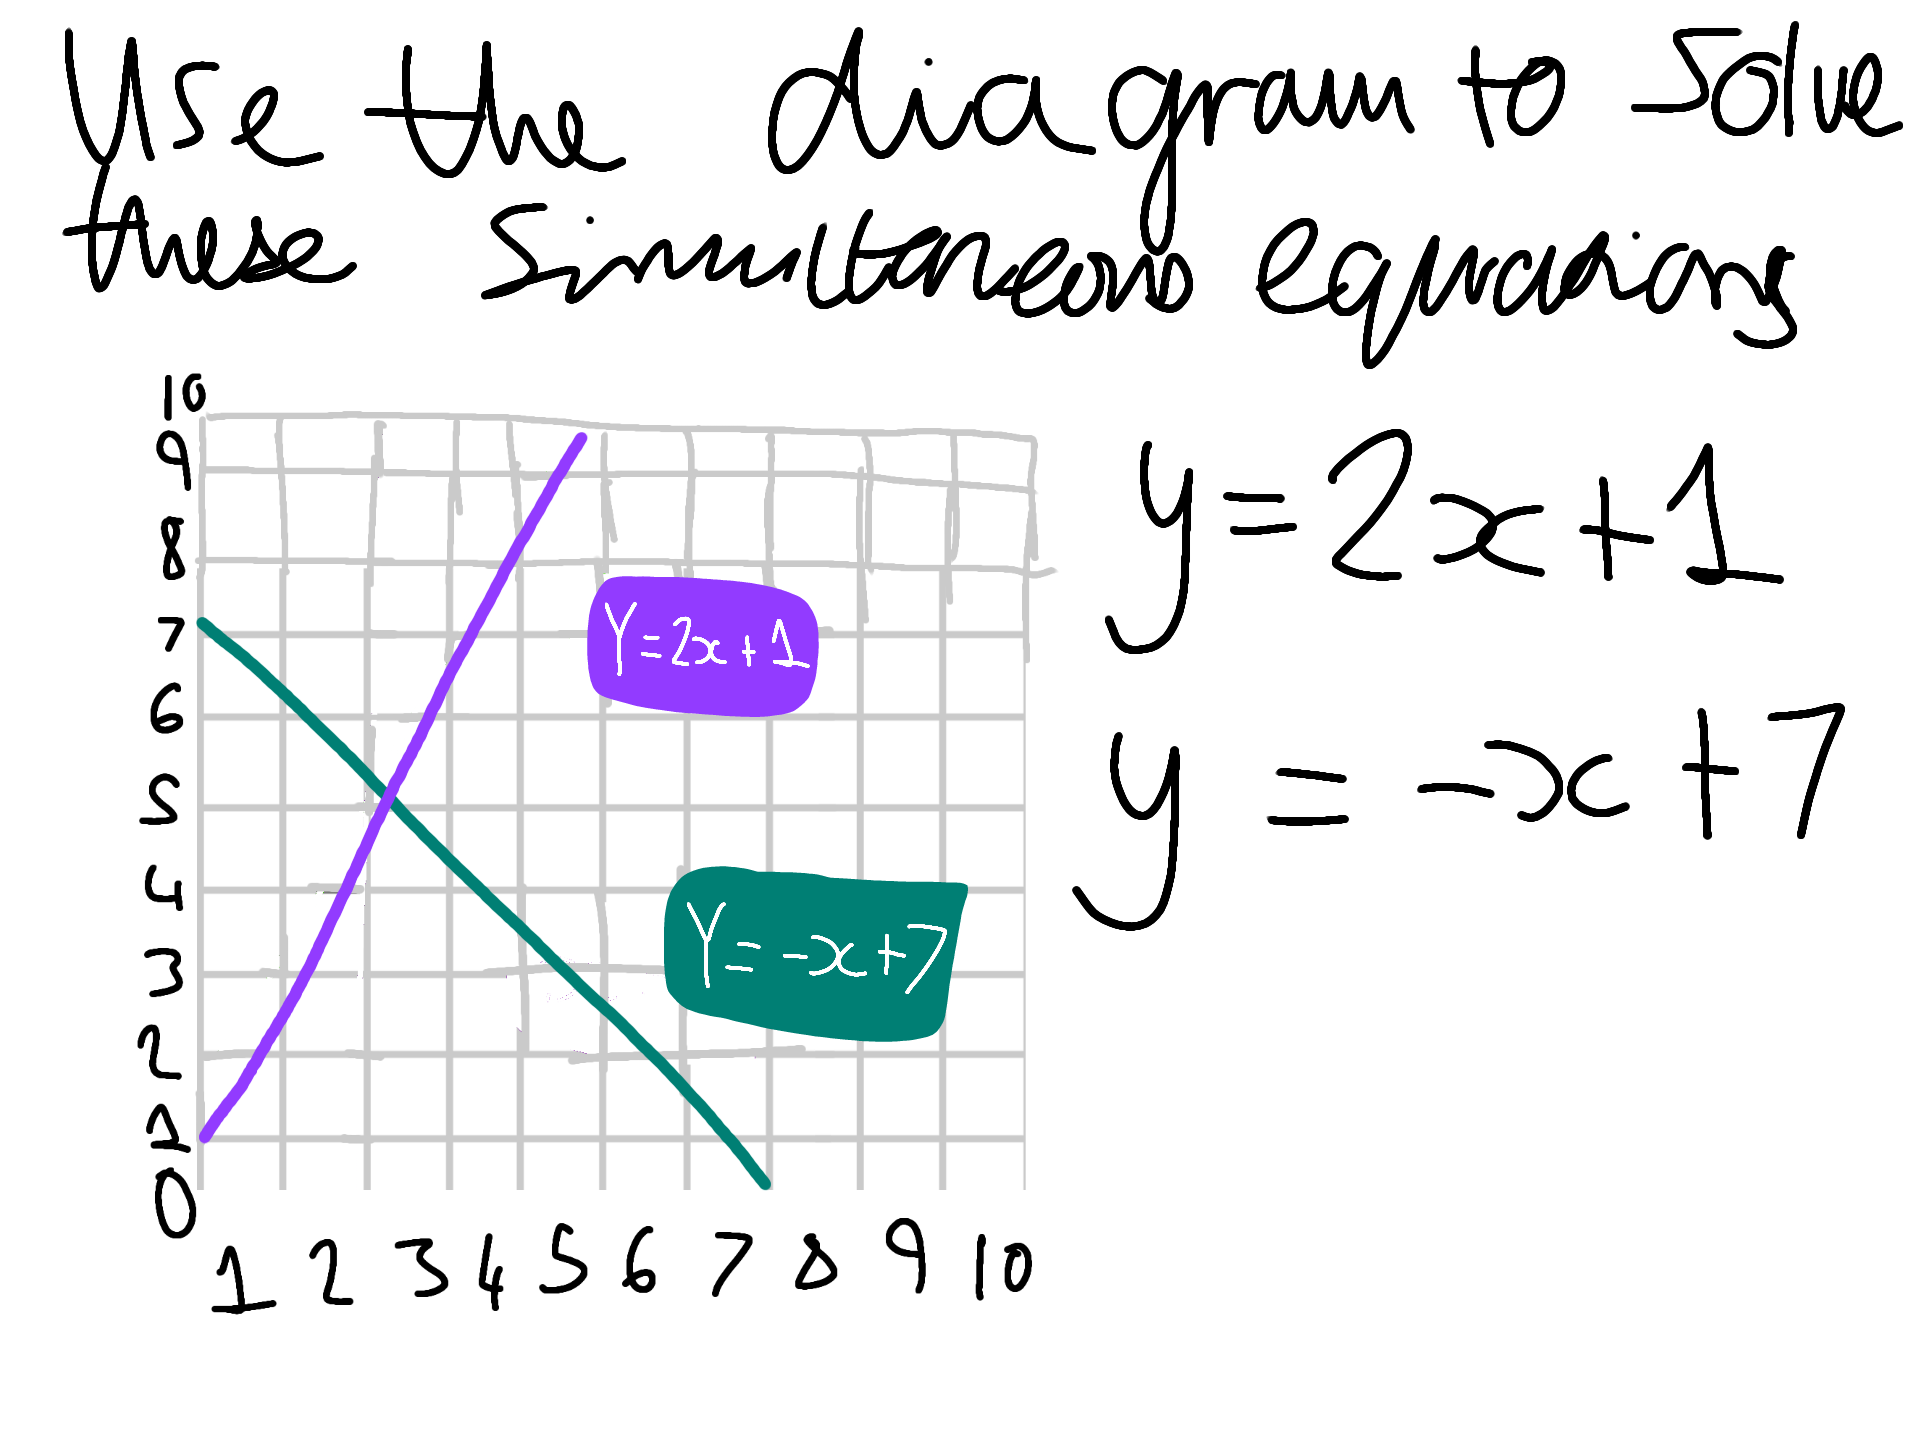 Use the diagram to solve
these simultaneous equations
10
9
8
7
6
5
4
3
2
1
0
1 2 3 4 5 6 7 8 9 10
Y=2x+1
Y=-x+7
y=2x+1
y=-x+7